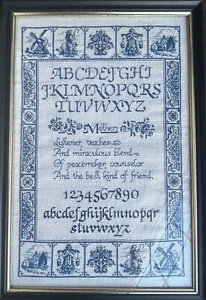 ABCDEFGHI
JKLMNOPQRS
TUVWXYZ
Mother
Listener, teacher,
And miraculous blend
Of peacemaker, counselor
And the best kind of friend.
1234567890
abcdefghijklmnopqr
stuvwxyz